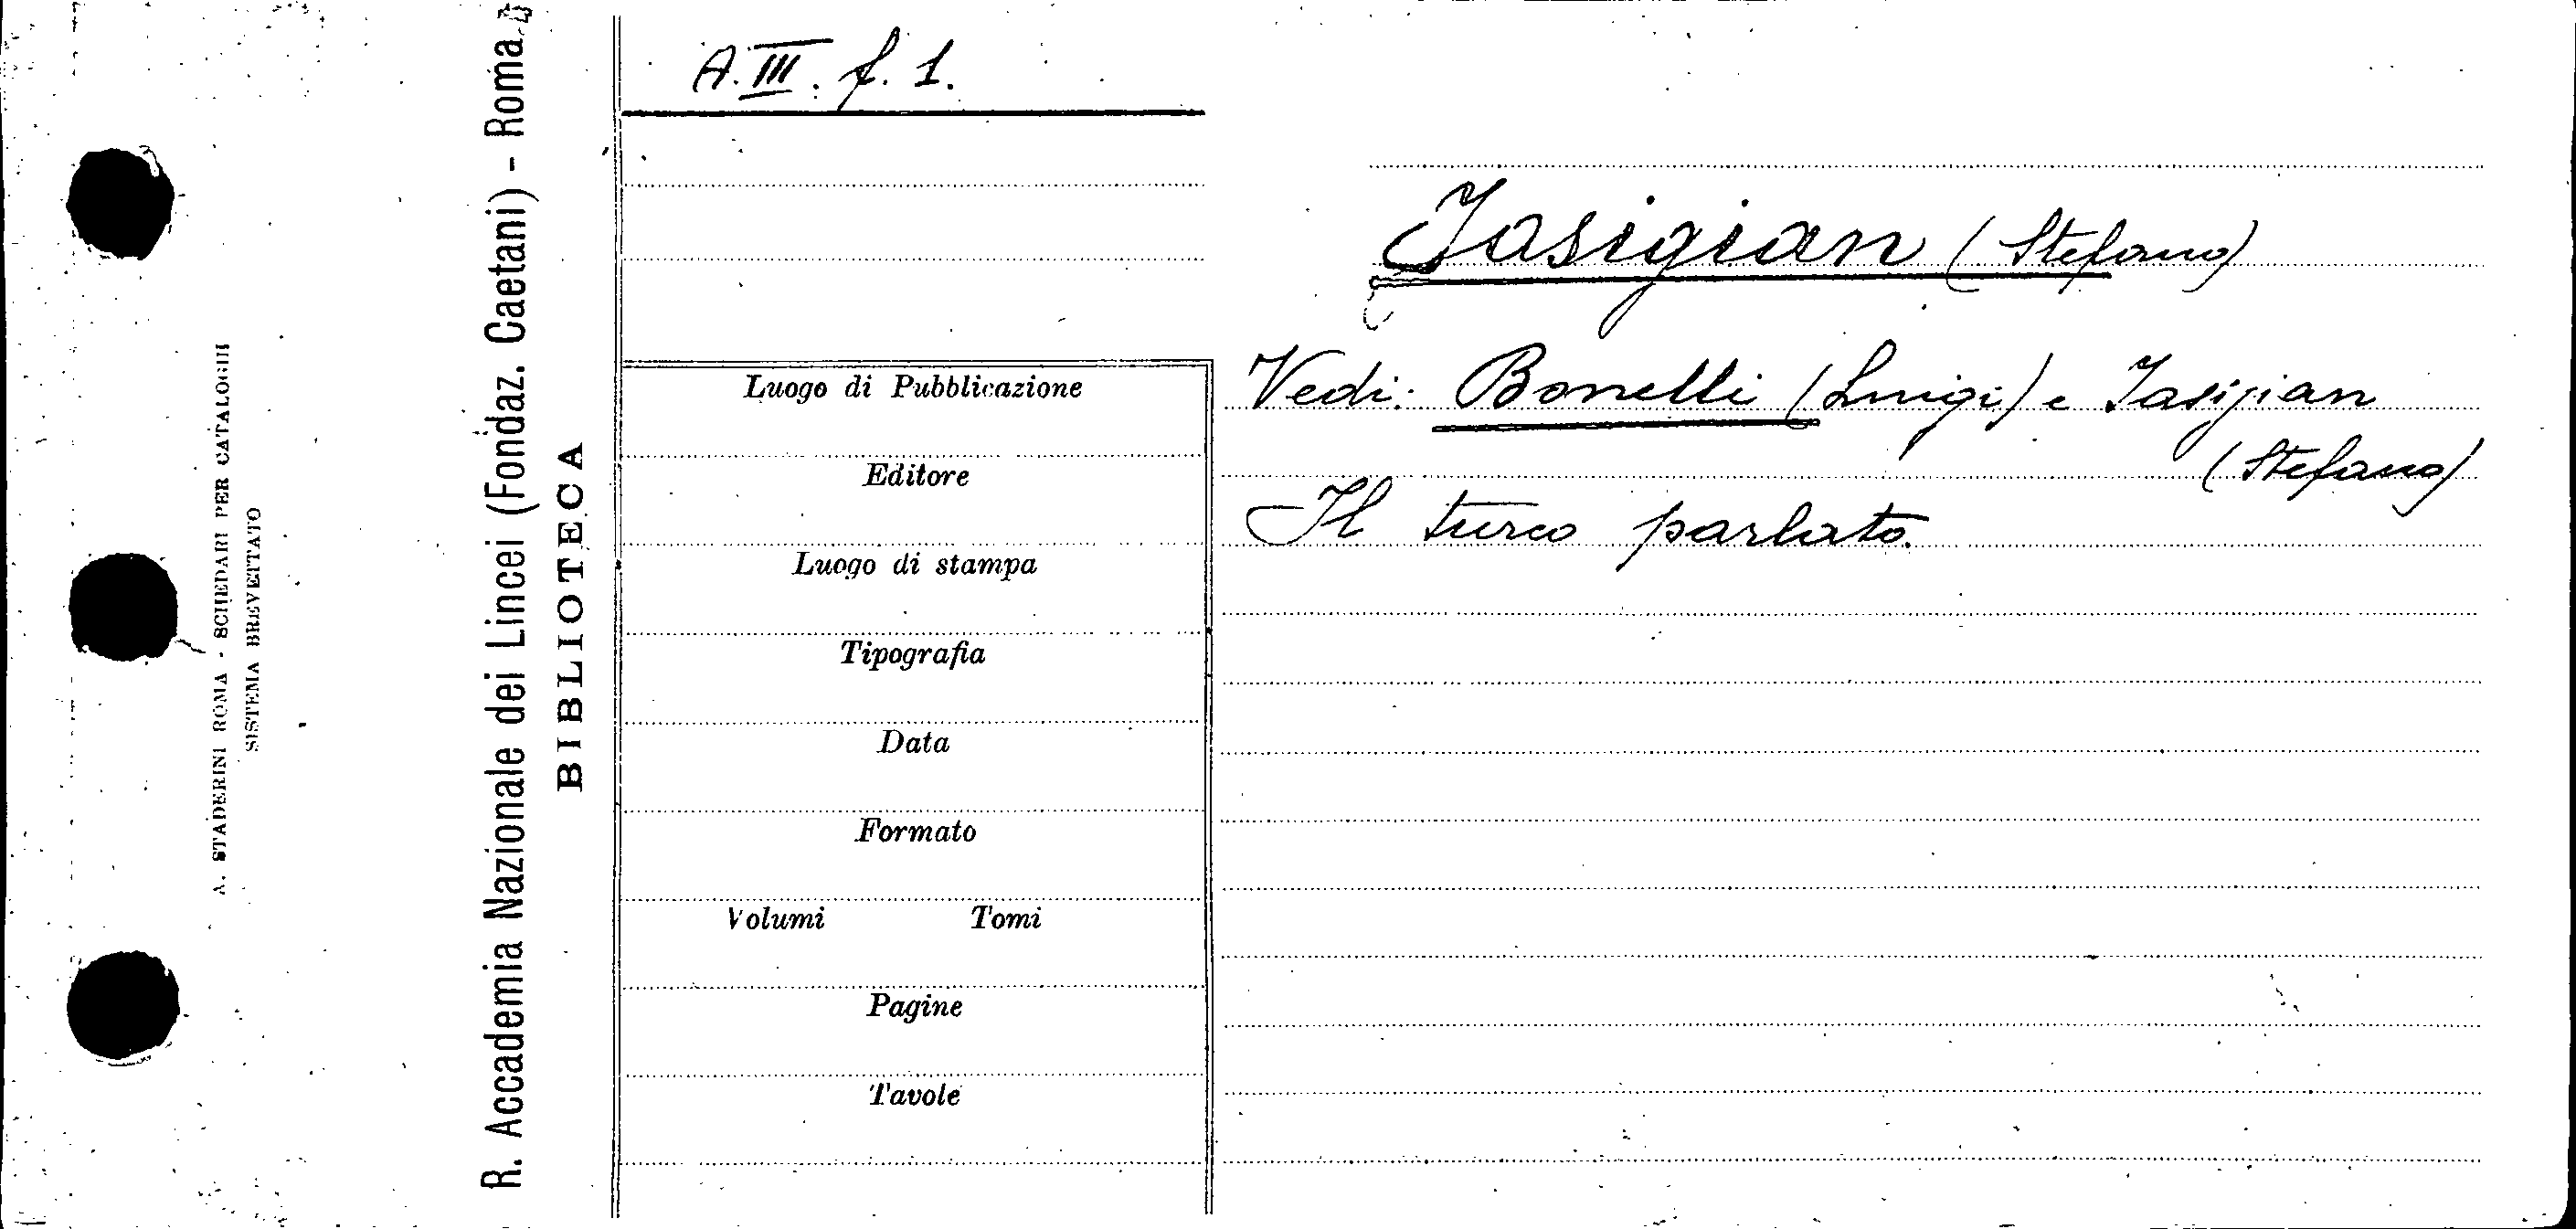 A. STADERINI ROMA - SCHEDARI PER CATALOGHI
SISTEMA BREVETTATO
R. Accademia Nazionale dei Lincei (Fondaz. Caetani) - Roma
BIBLIOTECA
A. III. f. 1.
Luogo di Pubblicazione
Editore
Luogo di stampa
Tipografia
Data
Formato
Volumi Tomi
Pagine
Tavole
Iasigian (Stefano)
Vedi: Bonelli (Luigi) e Iasigian
(Stefano)
Il turco parlato.